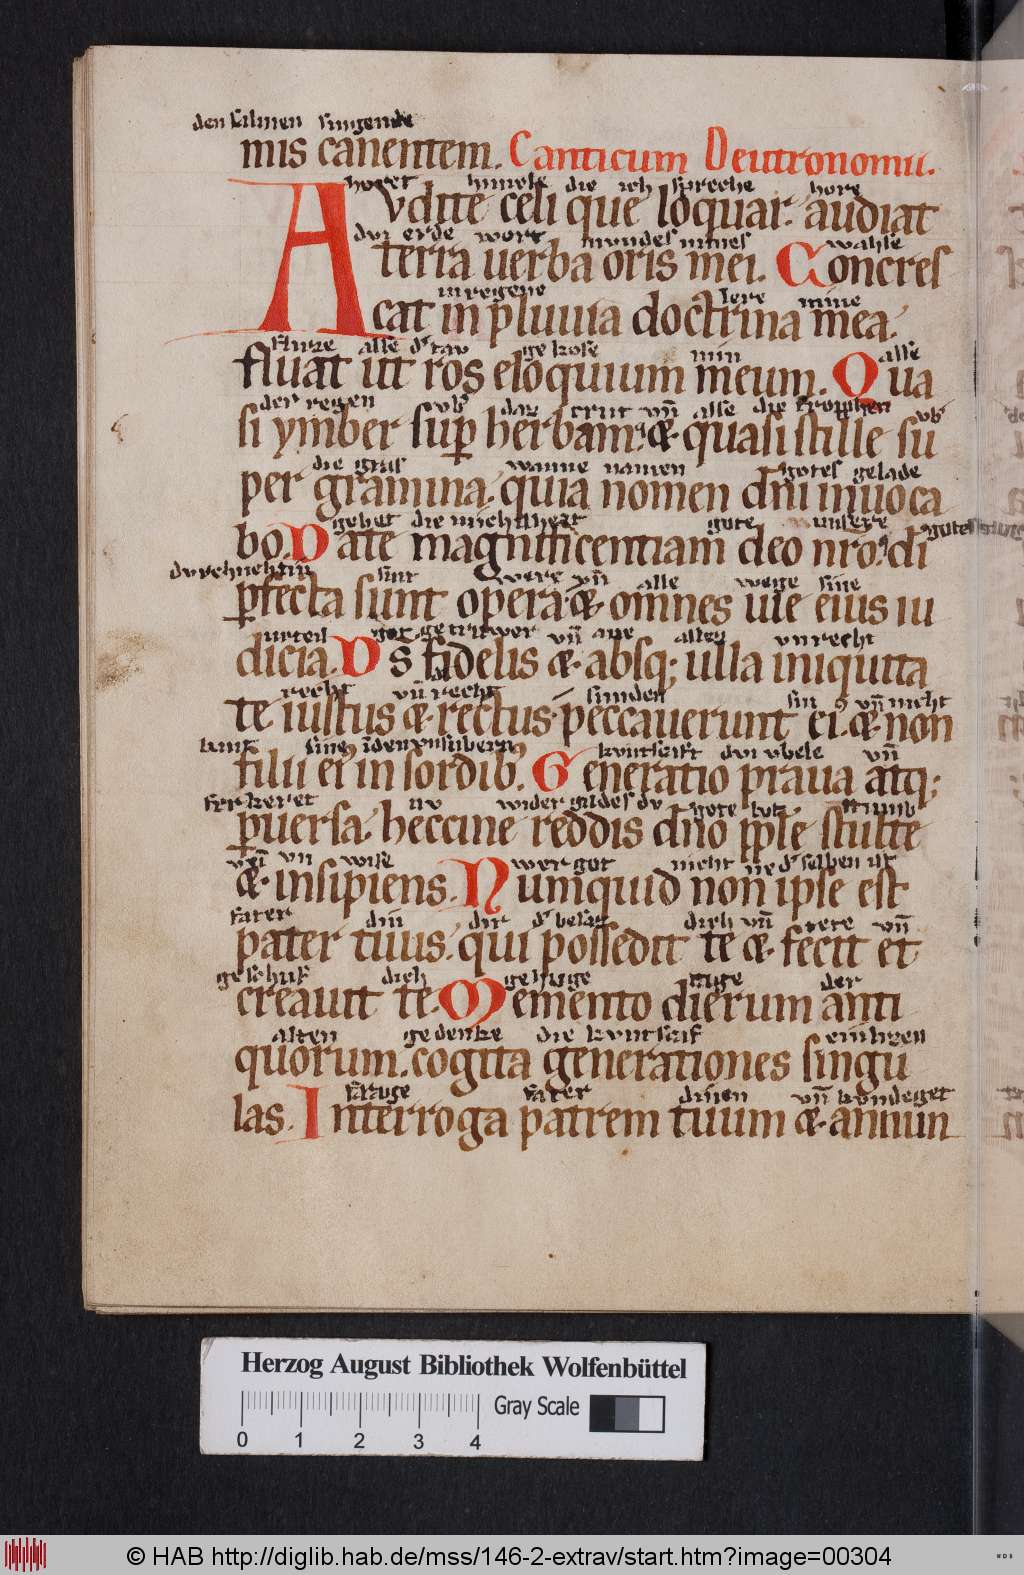 den salmen singende
mis canentem. Canticum Deutronomii.
horet himele die ich spreche hore
Avdite celi que loquar. audiat
dvi erde wort mundes mines wahse
terra uerba oris mei. Concres
in regene lere mine
cat in pluuia doctrina mea.
alse tav gekose min alse
fluat ut ros eloquium meum. Qua
der regen vb daz crut vn̄ alse die trophen vb
si ymber sup herbam. & quasi stille su
die gras wanne namen gotes gelade
per gramina. quia nomen dn̄i inuoca
gebet die michilheit gote unsere gotes
bo. Date magnificentiam deo nr̄o. di
sint were vn̄ alle wege sine
pfecta sunt opera. & omnes uie eius iu
urteil got getruwer vn̄ ane allez vnrecht
dicia. Ds fidelis & absq; ulla iniquita
recht vn̄ recht sunden vn̄ nicht
te iustus & rectus. peccauerunt ei. & non
kvntscaft dvi vbele vn̄
filii ei' in sordib'. Generatio praua atq;
ferkeret nv wider gildes dv gote
puersa. heccine reddis dn̄o pple stulte
vn̄ vn wise wer got nicht ne d' selben ist
& insipiens. Numquid non ipse est
fater din dir dich vn̄ tete vn̄
pater tuus. qui possedit te & fecit et
geschuf dich gehuge tage der
creauit te. Memento dierum anti
alten gedenke die kvntscaf
quorum. cogita generationes singu
frage fater dinen vn̄ kvndeget
las. Interroga patrem tuum & annun
Herzog August Bibliothek Wolfenbüttel
Gray Scale
0 1 2 3 4
© HAB http://diglib.hab.de/mss/146-2-extrav/start.htm?image=00304